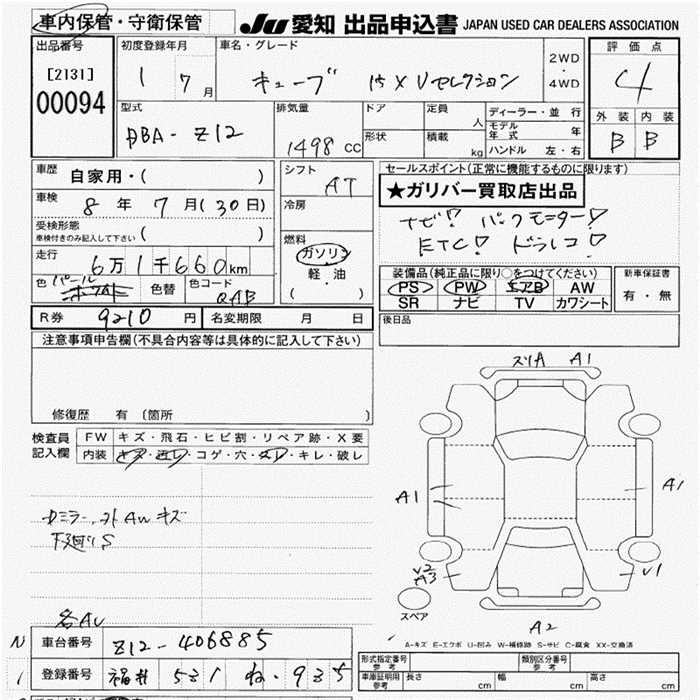 車内保管・守衛保管 JU 愛知 出品申込書 JAPAN USED CAR DEALERS ASSOCIATION
出品番号 初度登録年月 車名・グレード 評価点
[2131] 00094 1 7月 キューブ 15XVセレクション 2WD・4WD 4
型式 排気量 ドア 定員 人 ディーラー・並行 外装 内装
DBA-Z12 1498cc 形状 積載 kg モデル年式 年 B B
ハンドル 左・右
車歴 自家用・( ) シフト AT セールスポイント(正常に機能するものに限ります)
車検 8年7月(30日) 冷房 ★ガリバー買取店出品
受検形態 ( ) ナビ! バックモニター!
車検付きのみ記入して下さい ETC! ドラレコ!
走行 6万1千660km 燃料 ガソリン 軽・油 ( )
色 パール ホワイト 色替 色コード QAB
装備品(純正品に限り○をつけてください) 新車保証書
PS PW エアB AW 有・無
SR ナビ TV カワシート
R券 9210円 名変期限 月 日 後日品
注意事項申告欄(不具合内容等は具体的に記入して下さい)
ズリA A1
修復歴 有 (箇所 )
検査員記入欄 FW キズ・飛石・ヒビ割・リペア跡・X要
内装 キズ・汚レ・コゲ・穴・スレ・キレ・破レ
A1 A1
ミラー、外AWキズ
下廻りS
V2 A3 V1
スペア
各AU A2
A-キズ E-エクボ U-凹み W-補修跡 S-サビ C-腐食 XX-交換済
車台番号 Z12-406885 形式指定番号 参考 類別区分番号 参考
登録番号 福井 531 ね 935 車庫証明用 参考 長さ cm 幅 cm 高さ cm